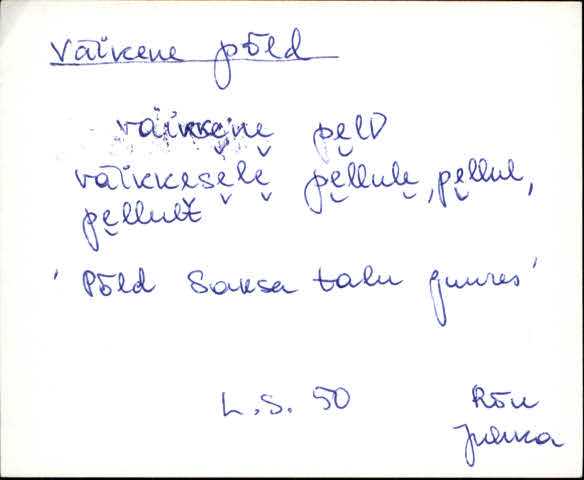 Väikene põld
väikkene pe̮lD
väikkese̮le̮ pe̮llule̮, pe̮llul,
pe̮llult
' Põld Saksa talu juures '
L.S. 50 Rõu